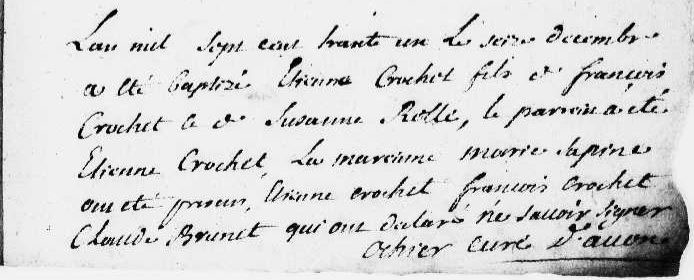 Lan mil sept cent trante un Le seize decembre
a été baptizé Etienne Crochet fils de françois
Crochet et de Susanne Rolle, le parrein a été
Etienne Crochet La mareinne marie Sapine
ont été presens, Etienne crochet françois Crochet
Claude Brunet qui ont declaré ne savoir signer
curé D'avon